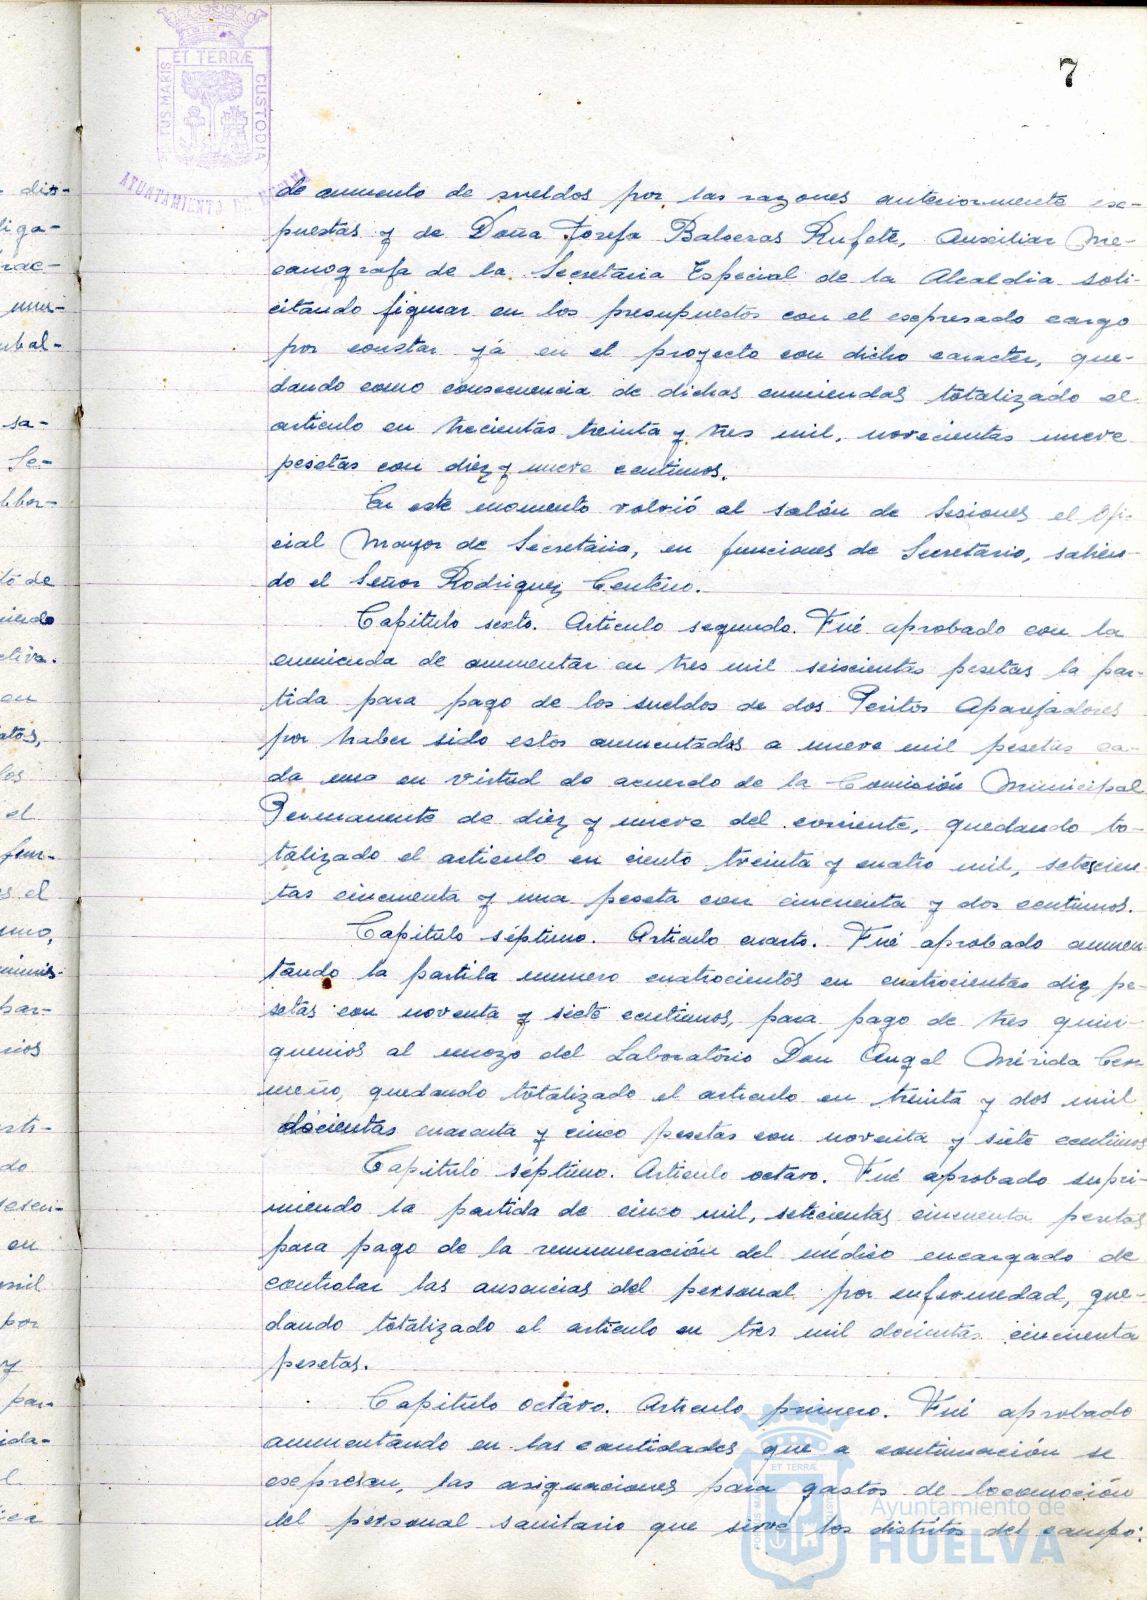 7
ET TERRÆ
TUS MARIS
CUSTODIA
AYUNTAMIENTO DE HUELVA
de aumento de sueldos por las razones anteriormente ex-
puestas y de Doña Josefa Balseras Rufete, Auxiliar Me-
canografa de la Secretaria Especial de la Alcaldia soli-
citando figurar en los presupuestos con el expresado cargo
por constar yá en el proyecto con dicho caracter, que-
dando como consecuencia de dichas enmiendas totalizado el
articulo en trecientas treinta y tres mil, novecientas nueve
pesetas con diez y nueve centimos.
En este momento volvió al salón de Sesiones el Ofi-
cial Mayor de Secretaria, en funciones de Secretario, salien-
do el Señor Rodriguez Centeno.
Capitulo sexto. Articulo segundo. Fué aprobado con la
enmienda de aumentar en tres mil seiscientas pesetas la par-
tida para pago de los sueldos de dos Peritos Aparejadores
por haber sido estos aumentados a nueve mil pesetas ca-
da uno en virtud de acuerdo de la Comisión Municipal
Permanente de diez y nueve del corriente, quedando to-
talizado el articulo en ciento treinta y cuatro mil, setecien-
tas cincuenta y una peseta con cincuenta y dos centimos.
Capitulo séptimo. Articulo cuarto. Fué aprobado aumen
tando la partida numero cuatrocientos en cuatrocientas diez pe-
setas con noventa y siete centimos, para pago de tres quin-
quenios al mozo del Laboratorio Don Angel Mérida Cer
meño, quedando totalizado el articulo en treinta y dos mil
docientas cuarenta y cinco pesetas con noventa y siete centimos
Capitulo séptimo. Articulo octavo. Fué aprobado supri-
miendo la partida de cinco mil, setecientas cincuenta pesetas
para pago de la remuneración del médico encargado de
controlar las ausencias del personal por enfermedad, que-
dando totalizado el articulo en tres mil docientas cincuenta
pesetas.
Capitulo octavo. Articulo primero. Fué aprobado
aumentando en las cantidades que a continuación se
expresan, las asignaciones para gastos de locomoción
del personal sanitario que sirve los distritos del campo:
ET TERRÆ
Ayuntamiento de
HUELVA